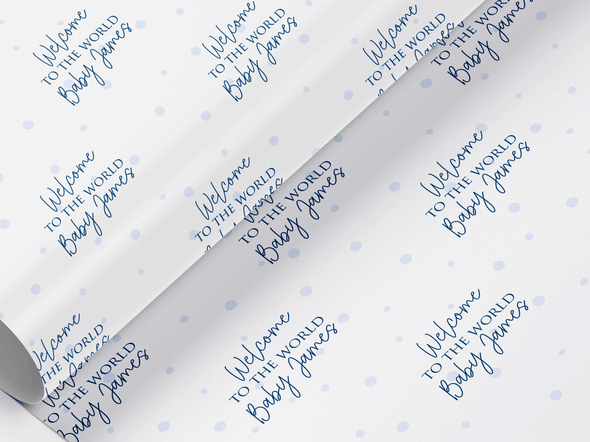 Welcome
TO THE WORLD
Baby James
Welcome
TO THE WORLD
Baby James
Welcome
TO THE WORLD
TO THE WORLD
Baby James
Welcome
TO THE WORLD
Baby James
Welcome
TO THE WORLD
TO THE WORLD
Baby James
Welcome
TO THE WORLD
Baby James
Welcome
THE WORLD
TO THE WORLD
Baby James
Welcome
TO THE WORLD
Baby James
Welcome
TO THE WORLD
Baby James